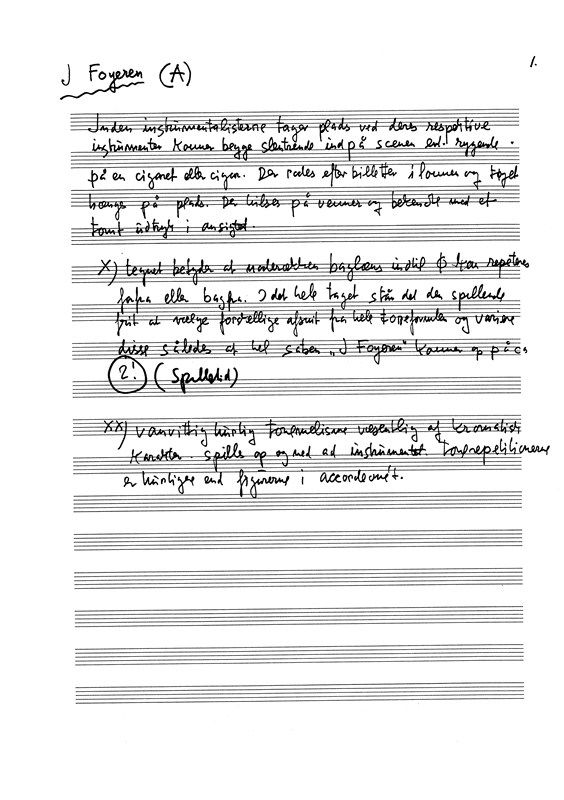 1.
J Foyeren (A)
Inden instrumentalisterne tager plads ved deres respektive
instrumenter kommer begge slentrende ind på scenen evt. rygende
på en cigaret eller cigar. Der ledes efter billetter i lommer og tøjet
hænges på plads. Der hilses på venner og bekendte med et
tomt udtryk i ansigtet.
X) tegnet betyder at baglæns indtil kan repeteres
forfra eller bagfra. I det hele taget står det den spillende
frit at vælge forskellige afsnit fra hele toneformlen og variere
disse således at hel "J Foyeren" kommer op på ca
2! (Spilletid)
XX) vanvittig hurtig væsentlig af kromatisk
karakter. spilles op og ned ad instrumentet. tonerepetitionerne
er hurtigere end figurerne i accordeonet.